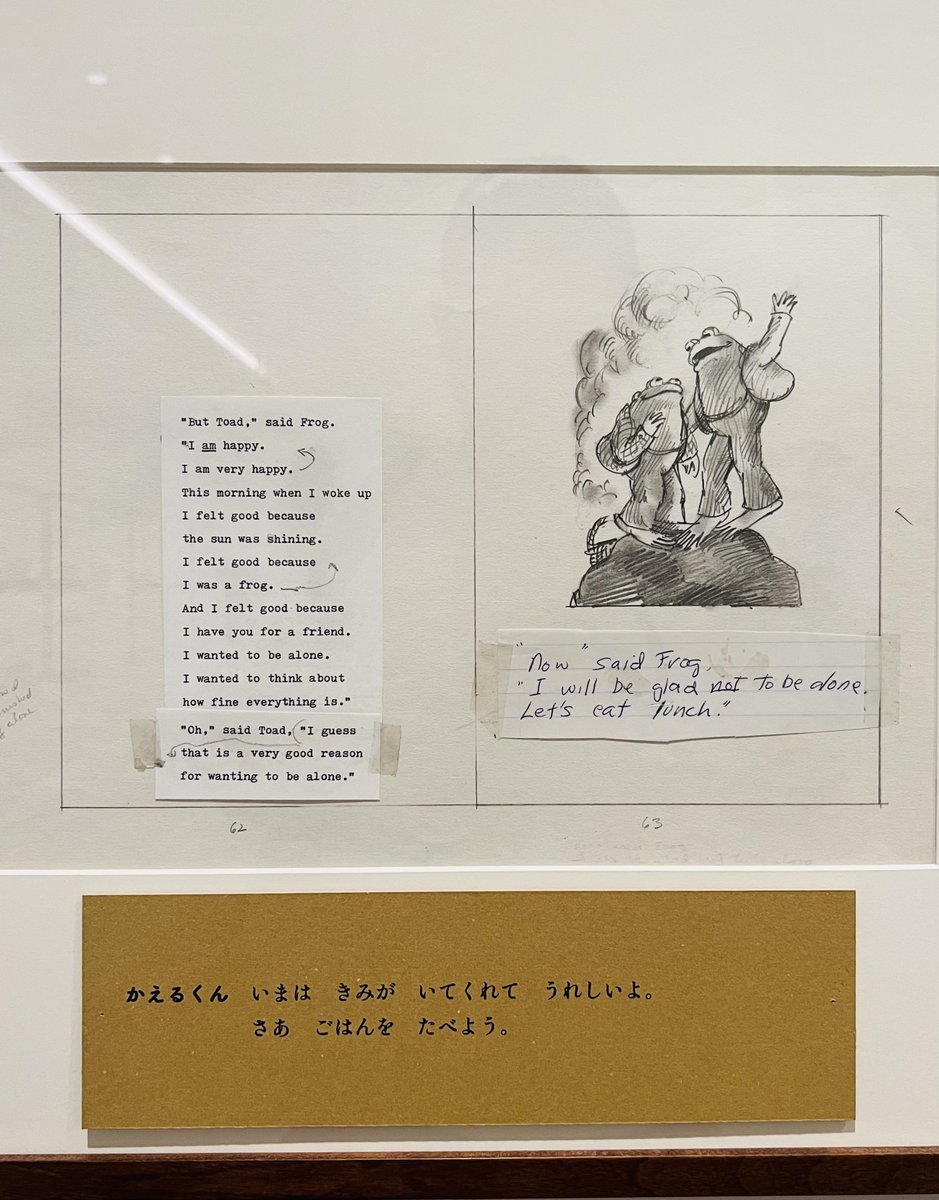 "But Toad," said Frog.
"I am happy.
I am very happy.
This morning when I woke up
I felt good because
the sun was shining.
I felt good because
I was a frog.
And I felt good because
I have you for a friend.
I wanted to be alone.
I wanted to think about
how fine everything is."
"Oh," said Toad, "I guess
that is a very good reason
for wanting to be alone."
62
"Now" said Frog,
"I will be glad not to be alone.
Let's eat lunch."
63
かえるくん いまは きみが いてくれて うれしいよ。
さあ ごはんを たべよう。